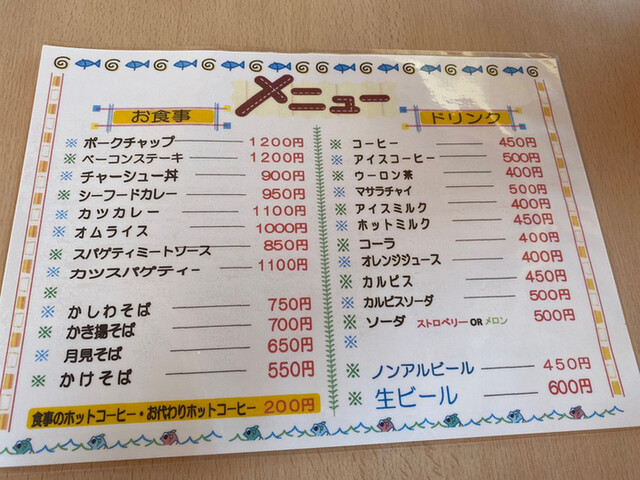 メニュー
お食事
※ ポークチャップ 1200円
※ ベーコンステーキ 1200円
※ チャーシュー丼 900円
※ シーフードカレー 950円
※ カツカレー 1100円
※ オムライス 1000円
※ スパゲティミートソース 850円
※ カツスパゲティー 1100円
※
※ かしわそば 750円
※ かき揚そば 700円
※ 月見そば 650円
※ かけそば 550円
食事のホットコーヒー・お代わりホットコーヒー 200円
ドリンク
※ コーヒー 450円
※ アイスコーヒー 500円
※ ウーロン茶 400円
※ マサラチャイ 500円
※ アイスミルク 400円
※ ホットミルク 450円
※ コーラ 400円
※ オレンジジュース 400円
※ カルピス 450円
※ カルピスソーダ 500円
※ ソーダ ストロベリー OR メロン 500円
※
※ ノンアルビール 450円
※ 生ビール 600円